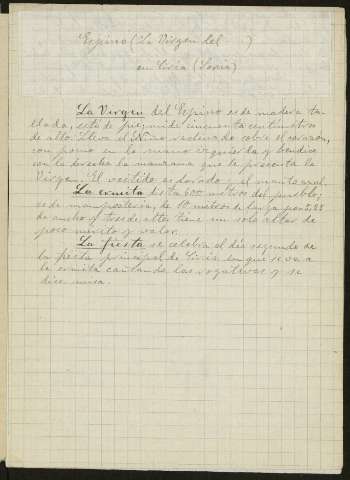 Espino (La Virgen del )
en Ciria (Soria)
La Virgen del Espino es de madera ta-
llada, está de pie, mide cincuenta centímetros
de alto. Lleva el Niño reclinado sobre el corazón,
con pomo en la mano izquierda y bendice
con la derecha la manzana que le presenta la
Virgen. El vestido es dorado y el manto azul.
La ermita dista 600 metros del pueblo,
es de mampostería, de 10 metros de larga por
de ancho y tres de alto, tiene un solo altar de
poco mérito y valor.
La fiesta se celebra el día segundo de
la fiesta principal de Ciria en que se va a
la ermita cantando las rogativas y se
dice misa.